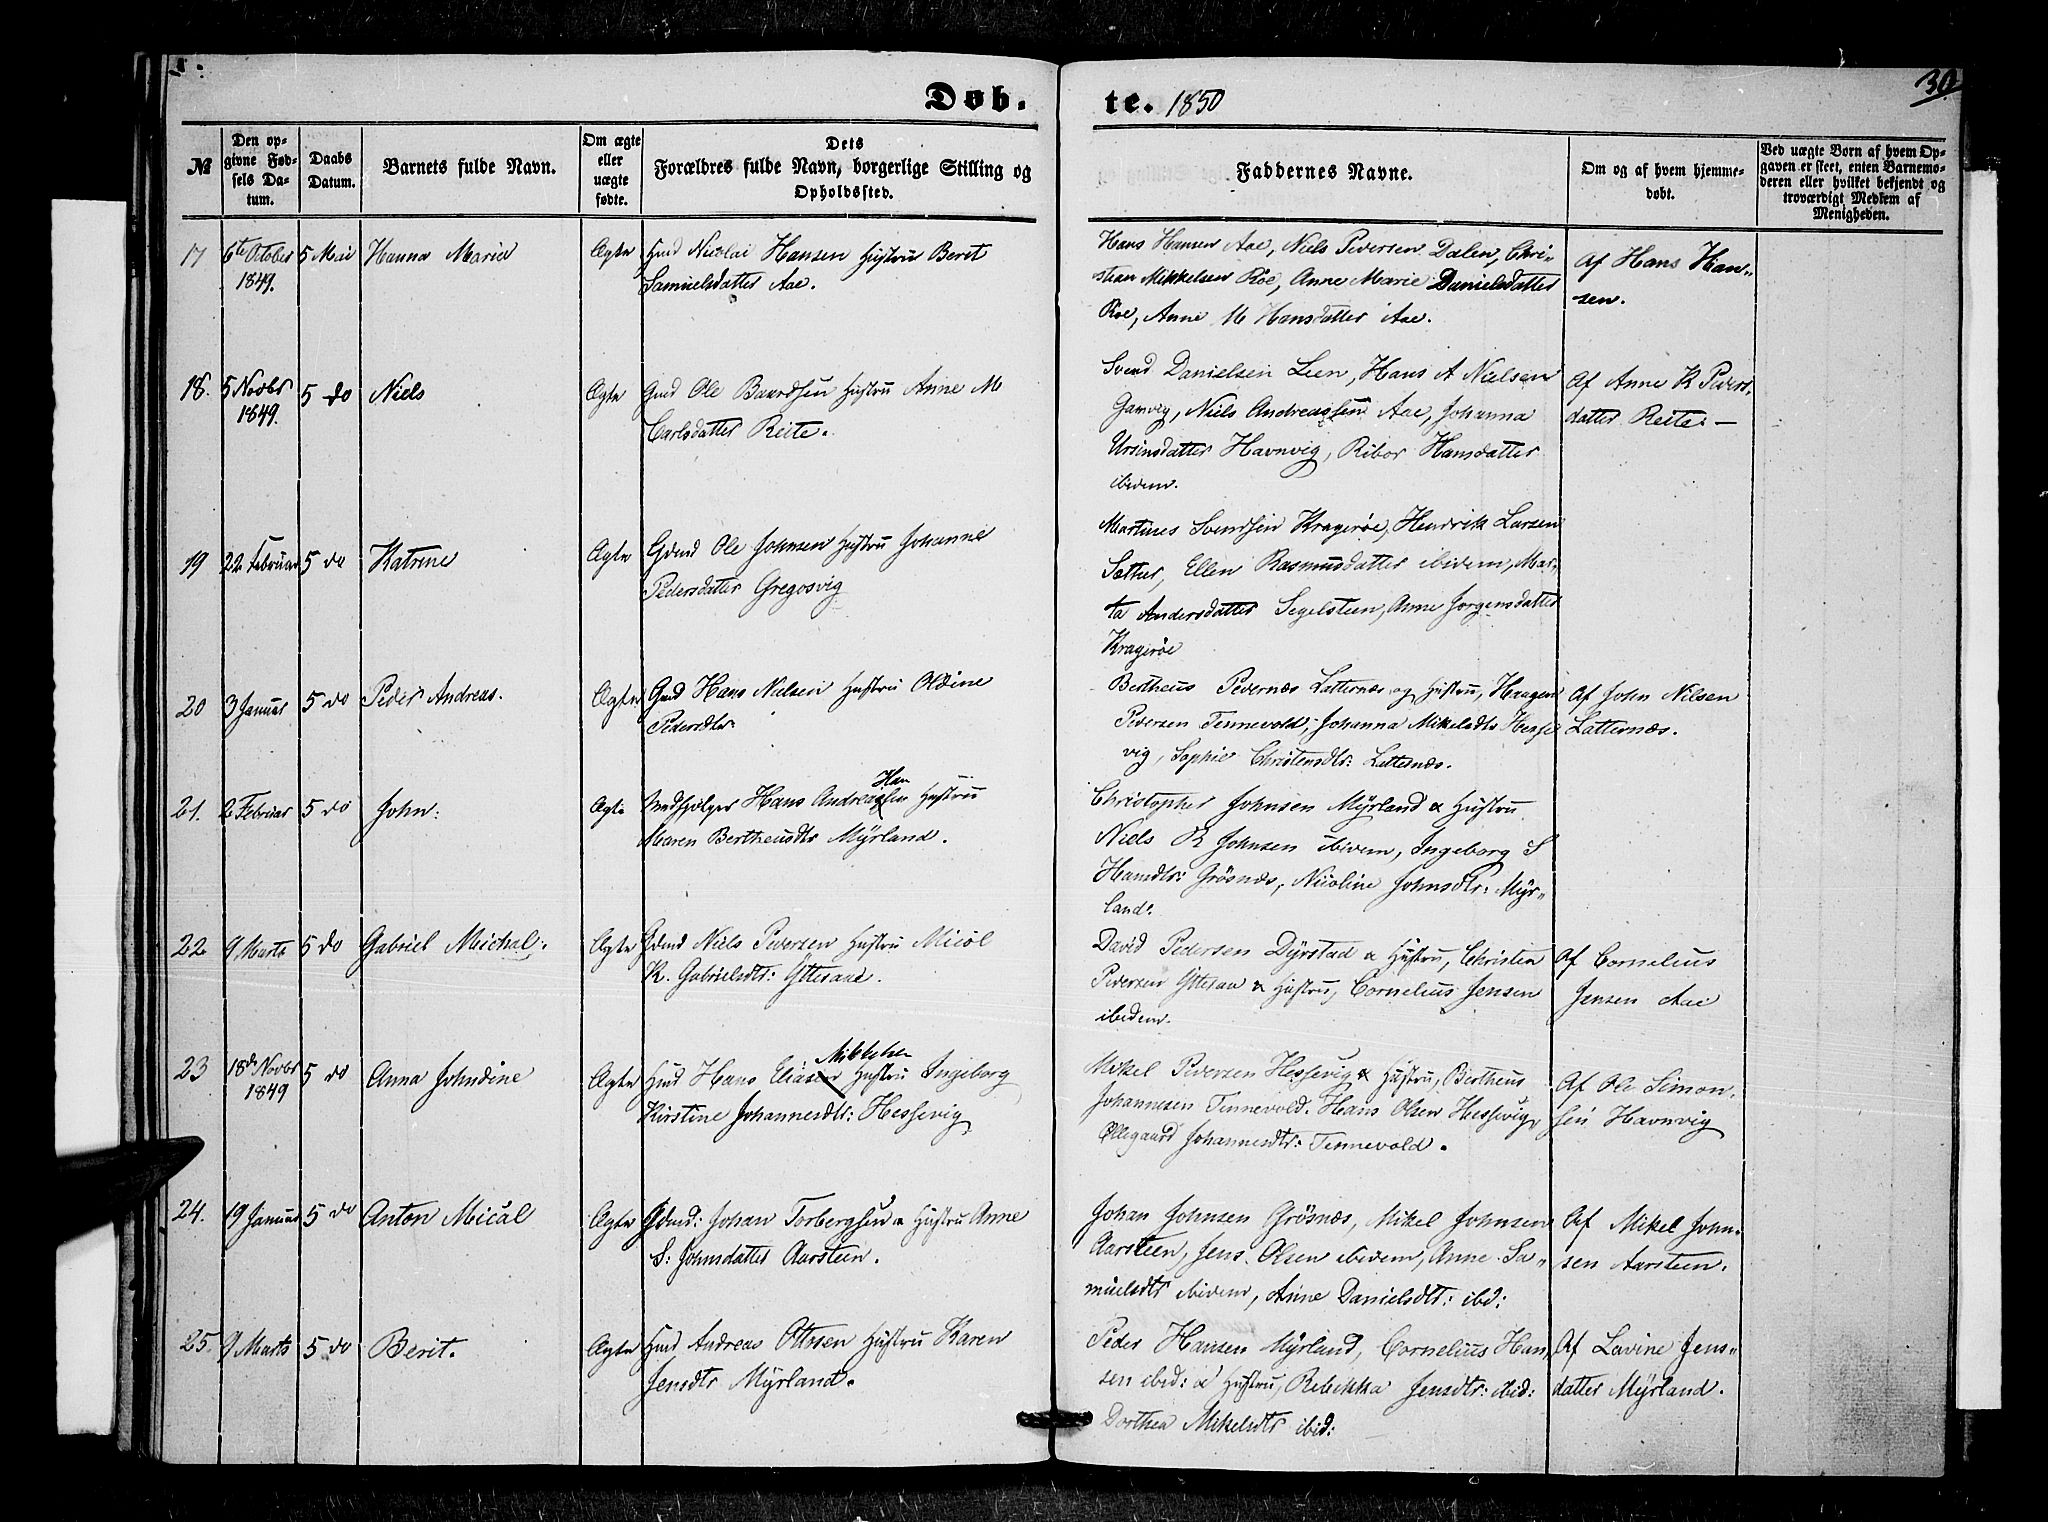 Døb. te. 1850
30
№
Den op-
givne Fød-
sels Da-
tum.
Daabs
Datum.
Barnets fulde Navn.
Om ægte
eller
uægte
fødte.
Dets
Forældres fulde Navn, borgerlige Stilling og
Opholdssted.
Faddernes Navne.
Om og af hvem hjemme-
døbt.
Ved uægte Børn af hvem Op-
gaven er skeet, enten Barnemo-
deren eller hvilket bekjendt og
troværdigt Medlem af
Menigheden.
17 6te October 5 Mai Hanna Maria Ægte Huusmd Nicolai Hansen Hustru Beret
1849.
Samuelsdatter Aae.
Hans Hansen Aae, Niels Pedersen Dalen, Chri-
stian Mikkelsen Röe, Anne Marie Danielsdatter
Röe, Anne M Hansdatter Aae.
Af Hans Han-
sen.
18. 5 Novbr 5 do Niels Ægte Gmd Ole Baardsen Hustru Anne M
1849.
Carlsdatter Reite.
Svend Danielsen Leen, Hans A Nielsen
Gamvig, Niels Andreassen Aae, Johanna
Ursinsdatter Havnvig, Ribor Hansdatter
ibidem.
Af Anne K Peders-
datter Reite. —
19 22 Februar 5 do Katrine Ægte Gdmd Ole Johnsen Hustru Johanne
Pedersdatter Gregosvig
Martines Svendsen Kragerøe, Hendrik Larsen
Sæther, Ellen Rasmusdatter ibidem, Mar-
ta Andersdatter Segelsteen, Anne Jørgensdatter
Kragerøe
20 3 Januar 5 do Peder Andreas. Ægte Gmd Hans Nielsen Hustru Oldine
Pedersdtr
Bertheus Pedernæs Latternæs og Hustru, Haagen
Pedersen Tennevold, Johanna Mikelsdtr Hesje
vig, Sophie Christensdtr: Latternæs.
Af John Nilsen
Latternæs.
21. 2 Februar 5 do John: Ægte Hans Andreassen Han Hustru
Maren Bertheusdtr Myrland.
Christopher Johnsen Myrland & Hustru
Niels E Johnsen ibidem, Ingeborg S
Hansdtr: Grøsnæs, Nicoline Johnsdtr: Myr-
land.
22. 9 Marts 5 do Gabriel Michal. Ægte Gdmd Niels Pedersen Hustru Micöl
K. Gabrielsdtr: Ytteraae.
David Pedersen Dyrstad & Hustru, Christen
Pedersen Ytteraae & Hustru, Cornelius Jensen
ibidem.
Af Cornelius
Jensen Aae
23 18de Novbr 5 do Anna Johndine Ægte Hmd Hans Eliasen Mikkelsen Hustru Ingeborg
1849
Kirstine Johannesdtr: Hessevig
Mikel Pedersen Hessevig & Hustru, Bertheus
Johannesen Tennevold. Hans Olsen Hessevig,
Ollegaard Johannesdtr: Tennevold.
Af Ole Simon-
sen Havnvig
24. 19 Januar 5 do Anton Micál Ægte Gdmd: Johan Torbergsen & Hustru Anne
S: Johnsdatter Aarsteen.
Johan Johnsen Grøsnæs, Mikel Johnsen
Aarsteen, Jens Olsen ibidem, Anne Sa-
muelsdtr ibidem, Anne Danielsdtr: ibd:
Af Mikel John-
sen Aarsteen.
25. 9 Marts 5 do Berit. Ægte Hmd Andreas Ottosen Hustru Karen
Jensdtr Myrland.
Peder Hansen Myrland, Cornelius Han-
sen ibid: & Hustru, Rebekka Jensdtr: ibid:
Dorthea Mikelsdtr ibid:
Af Lavine Jens-
datter Myrland.